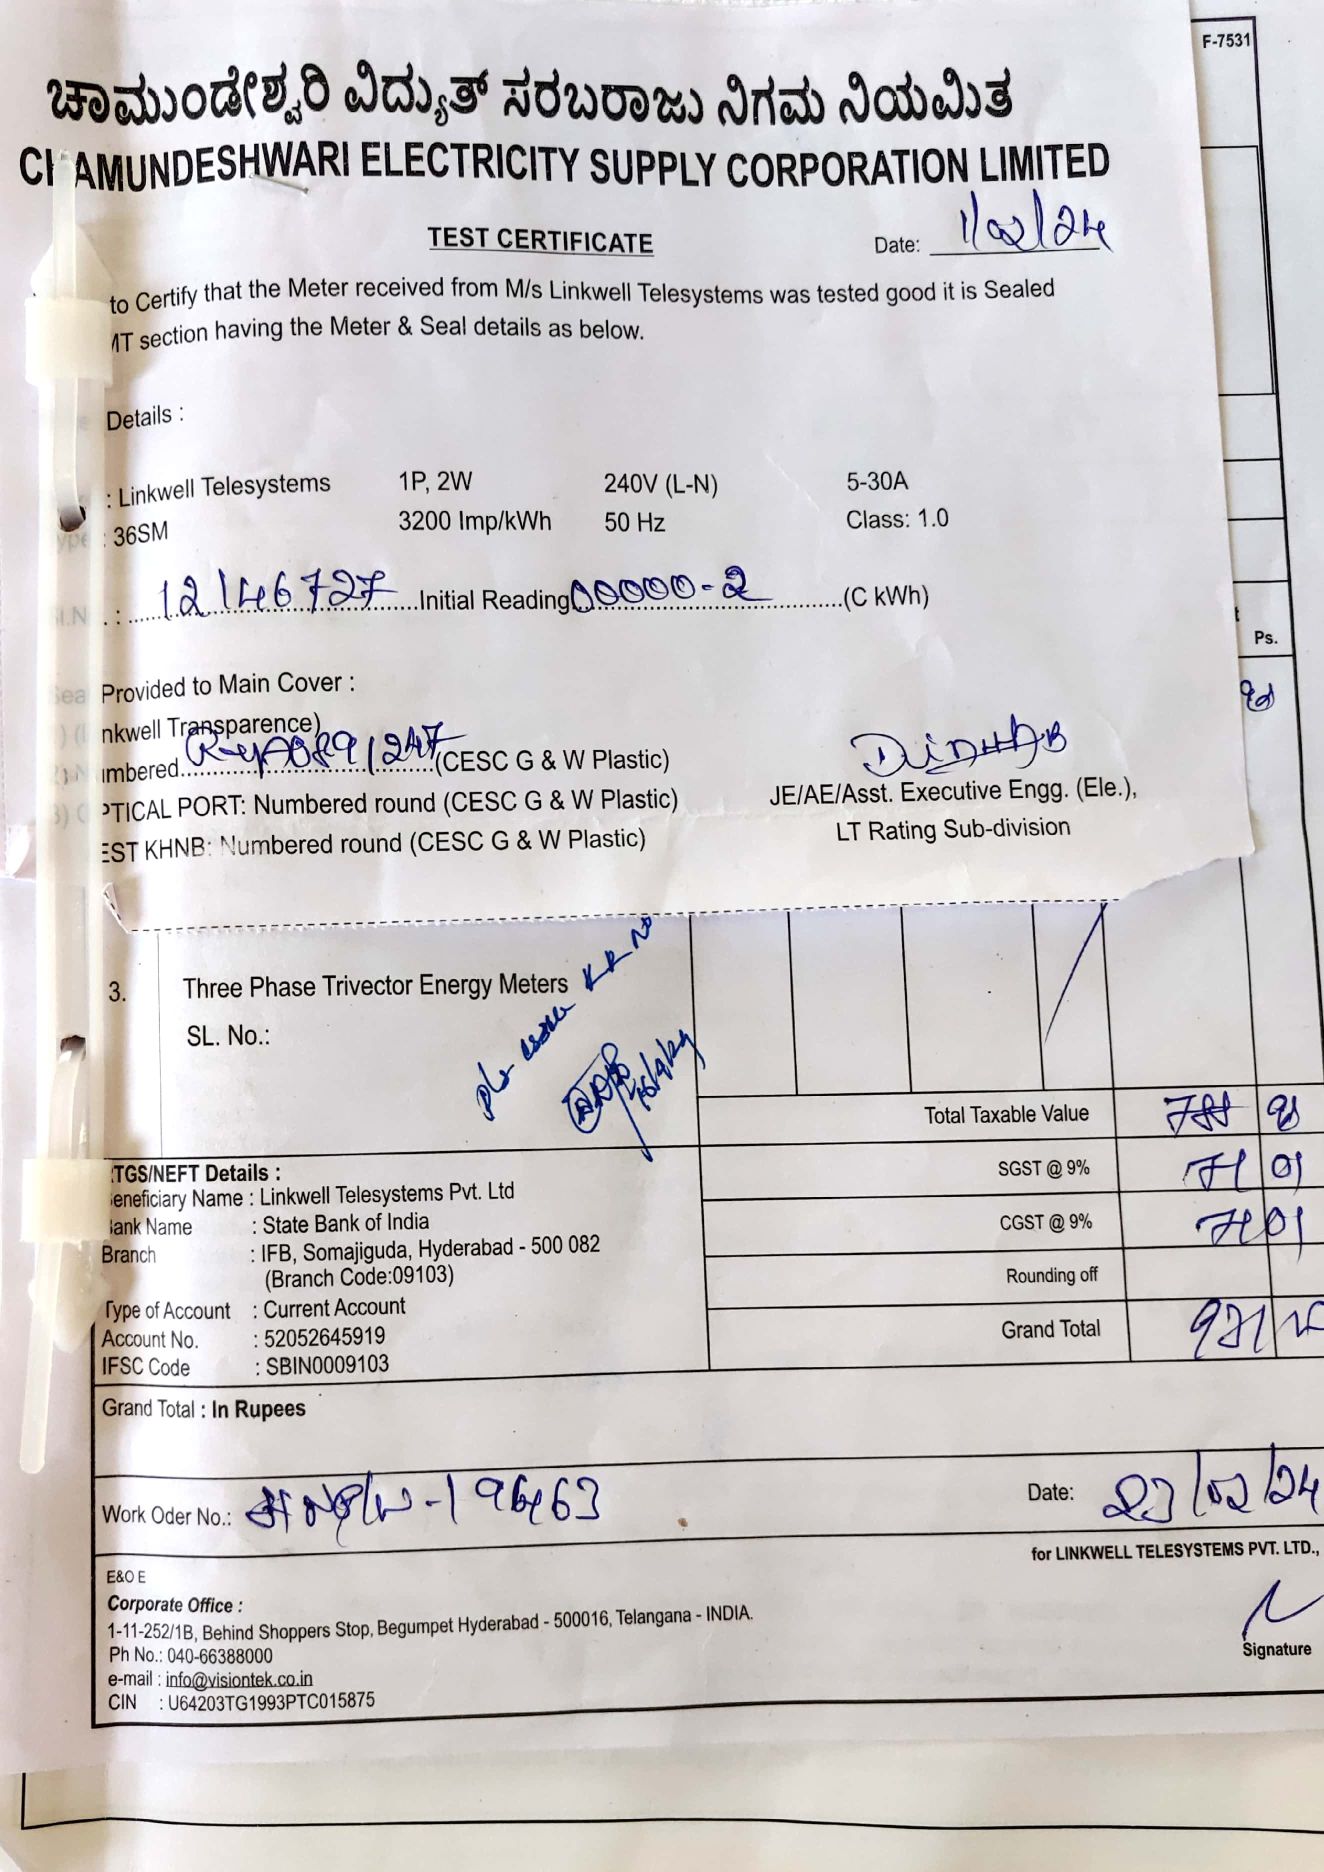 F-7531
ಚಾಮುಂಡೇಶ್ವರಿ ವಿದ್ಯುತ್ ಸರಬರಾಜು ನಿಗಮ ನಿಯಮಿತ
CHAMUNDESHWARI ELECTRICITY SUPPLY CORPORATION LIMITED
TEST CERTIFICATE
Date: 1/02/24
to Certify that the Meter received from M/s Linkwell Telesystems was tested good it is Sealed
MT section having the Meter & Seal details as below.
Details :
: Linkwell Telesystems 1P, 2W 240V (L-N) 5-30A
ype : 36SM 3200 Imp/kWh 50 Hz Class: 1.0
Sl.N . : 12146727 Initial Reading 00000-2 (C kWh)
Sea Provided to Main Cover :
nkwell Transparence)
umbered (CESC G & W Plastic)
PTICAL PORT: Numbered round (CESC G & W Plastic)
EST KHNB: Numbered round (CESC G & W Plastic)
JE/AE/Asst. Executive Engg. (Ele.),
LT Rating Sub-division
Ps.
3. Three Phase Trivector Energy Meters
SL. No.:
Total Taxable Value
SGST @ 9% 71 01
CGST @ 9% 71 01
Rounding off
Grand Total 931
TGS/NEFT Details :
eneficiary Name : Linkwell Telesystems Pvt. Ltd
ank Name : State Bank of India
Branch : IFB, Somajiguda, Hyderabad - 500 082
(Branch Code:09103)
Type of Account : Current Account
Account No. : 52052645919
IFSC Code : SBIN0009103
Grand Total : In Rupees
Work Oder No.: -196463
Date: 23/02/24
for LINKWELL TELESYSTEMS PVT. LTD.,
E&O E
Corporate Office :
1-11-252/1B, Behind Shoppers Stop, Begumpet Hyderabad - 500016, Telangana - INDIA.
Ph No.: 040-66388000
e-mail : info@visiontek.co.in
CIN : U64203TG1993PTC015875
Signature